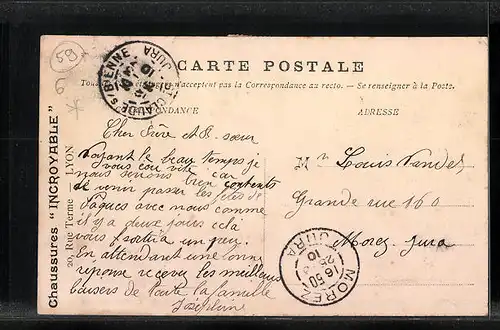 CARTE POSTALE
Tous les pays étrangers n'acceptent pas la Correspondance au recto. — Se renseigner à la Poste.
CORRESPONDANCE
ADRESSE
Cher Frère et B. sœur
Voyant le beau temps je
vous car
nous serions bien contents
de venir passer les fêtes de
Pâques avec nous comme
il y a deux jours cela
vous sortira un peu.
En attendant une bonne
réponse recevez les meilleurs
baisers de toute la famille
Joséphine
Mr Louis Vandel
Grande rue 160
Morez Jura
Chaussures "INCROYABLE"
20, Rue Terme — LYON
ST CLAUDE S/BIENNE
JURA
MOREZ
JURA
16 50
25
10
59
6